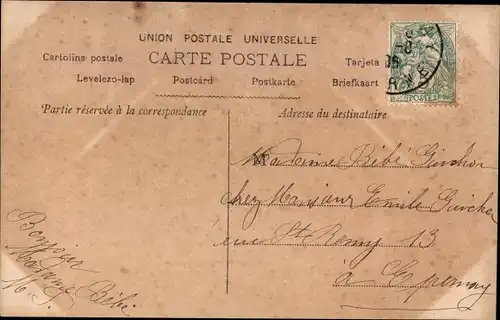 UNION POSTALE UNIVERSELLE
CARTE POSTALE
Cartolina postale
Tarjeta
Levelezo-lap Postcárd Postkarte Briefkaart
POSTES
Partie réservée à la correspondance
Adresse du destinataire
Madame Bébé
chez Monsieur Emile
rue St Remy 13
à Epernay
Bonjour
Madame Bébé